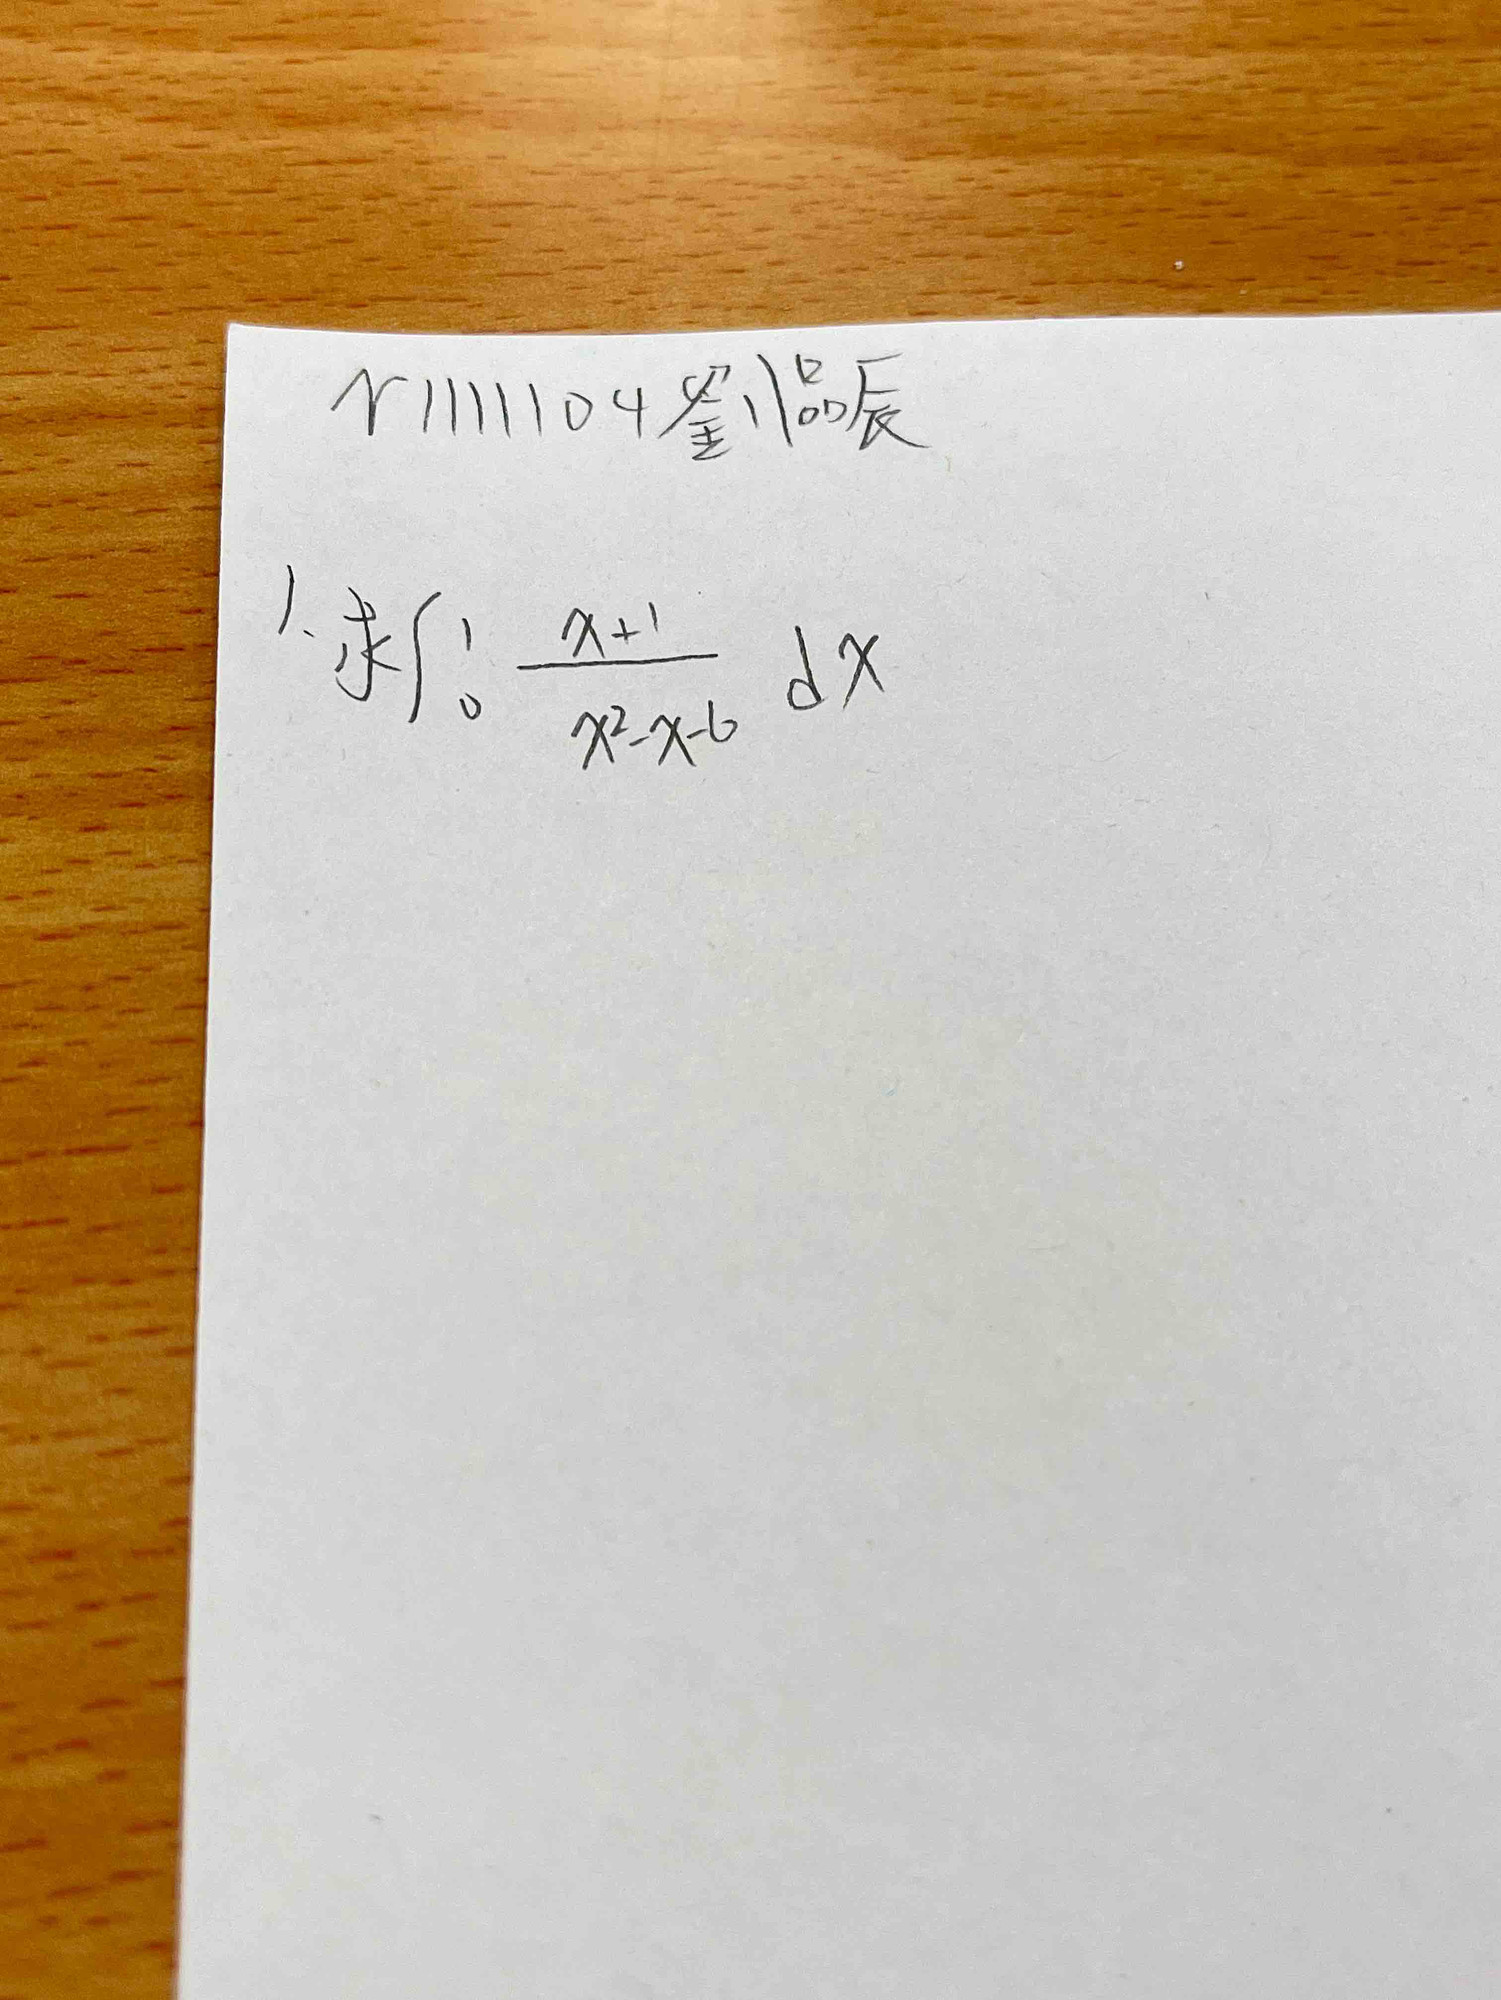 N1111104劉品辰
1. 求∫₀¹ \frac{x+1}{x²-x-6} dx